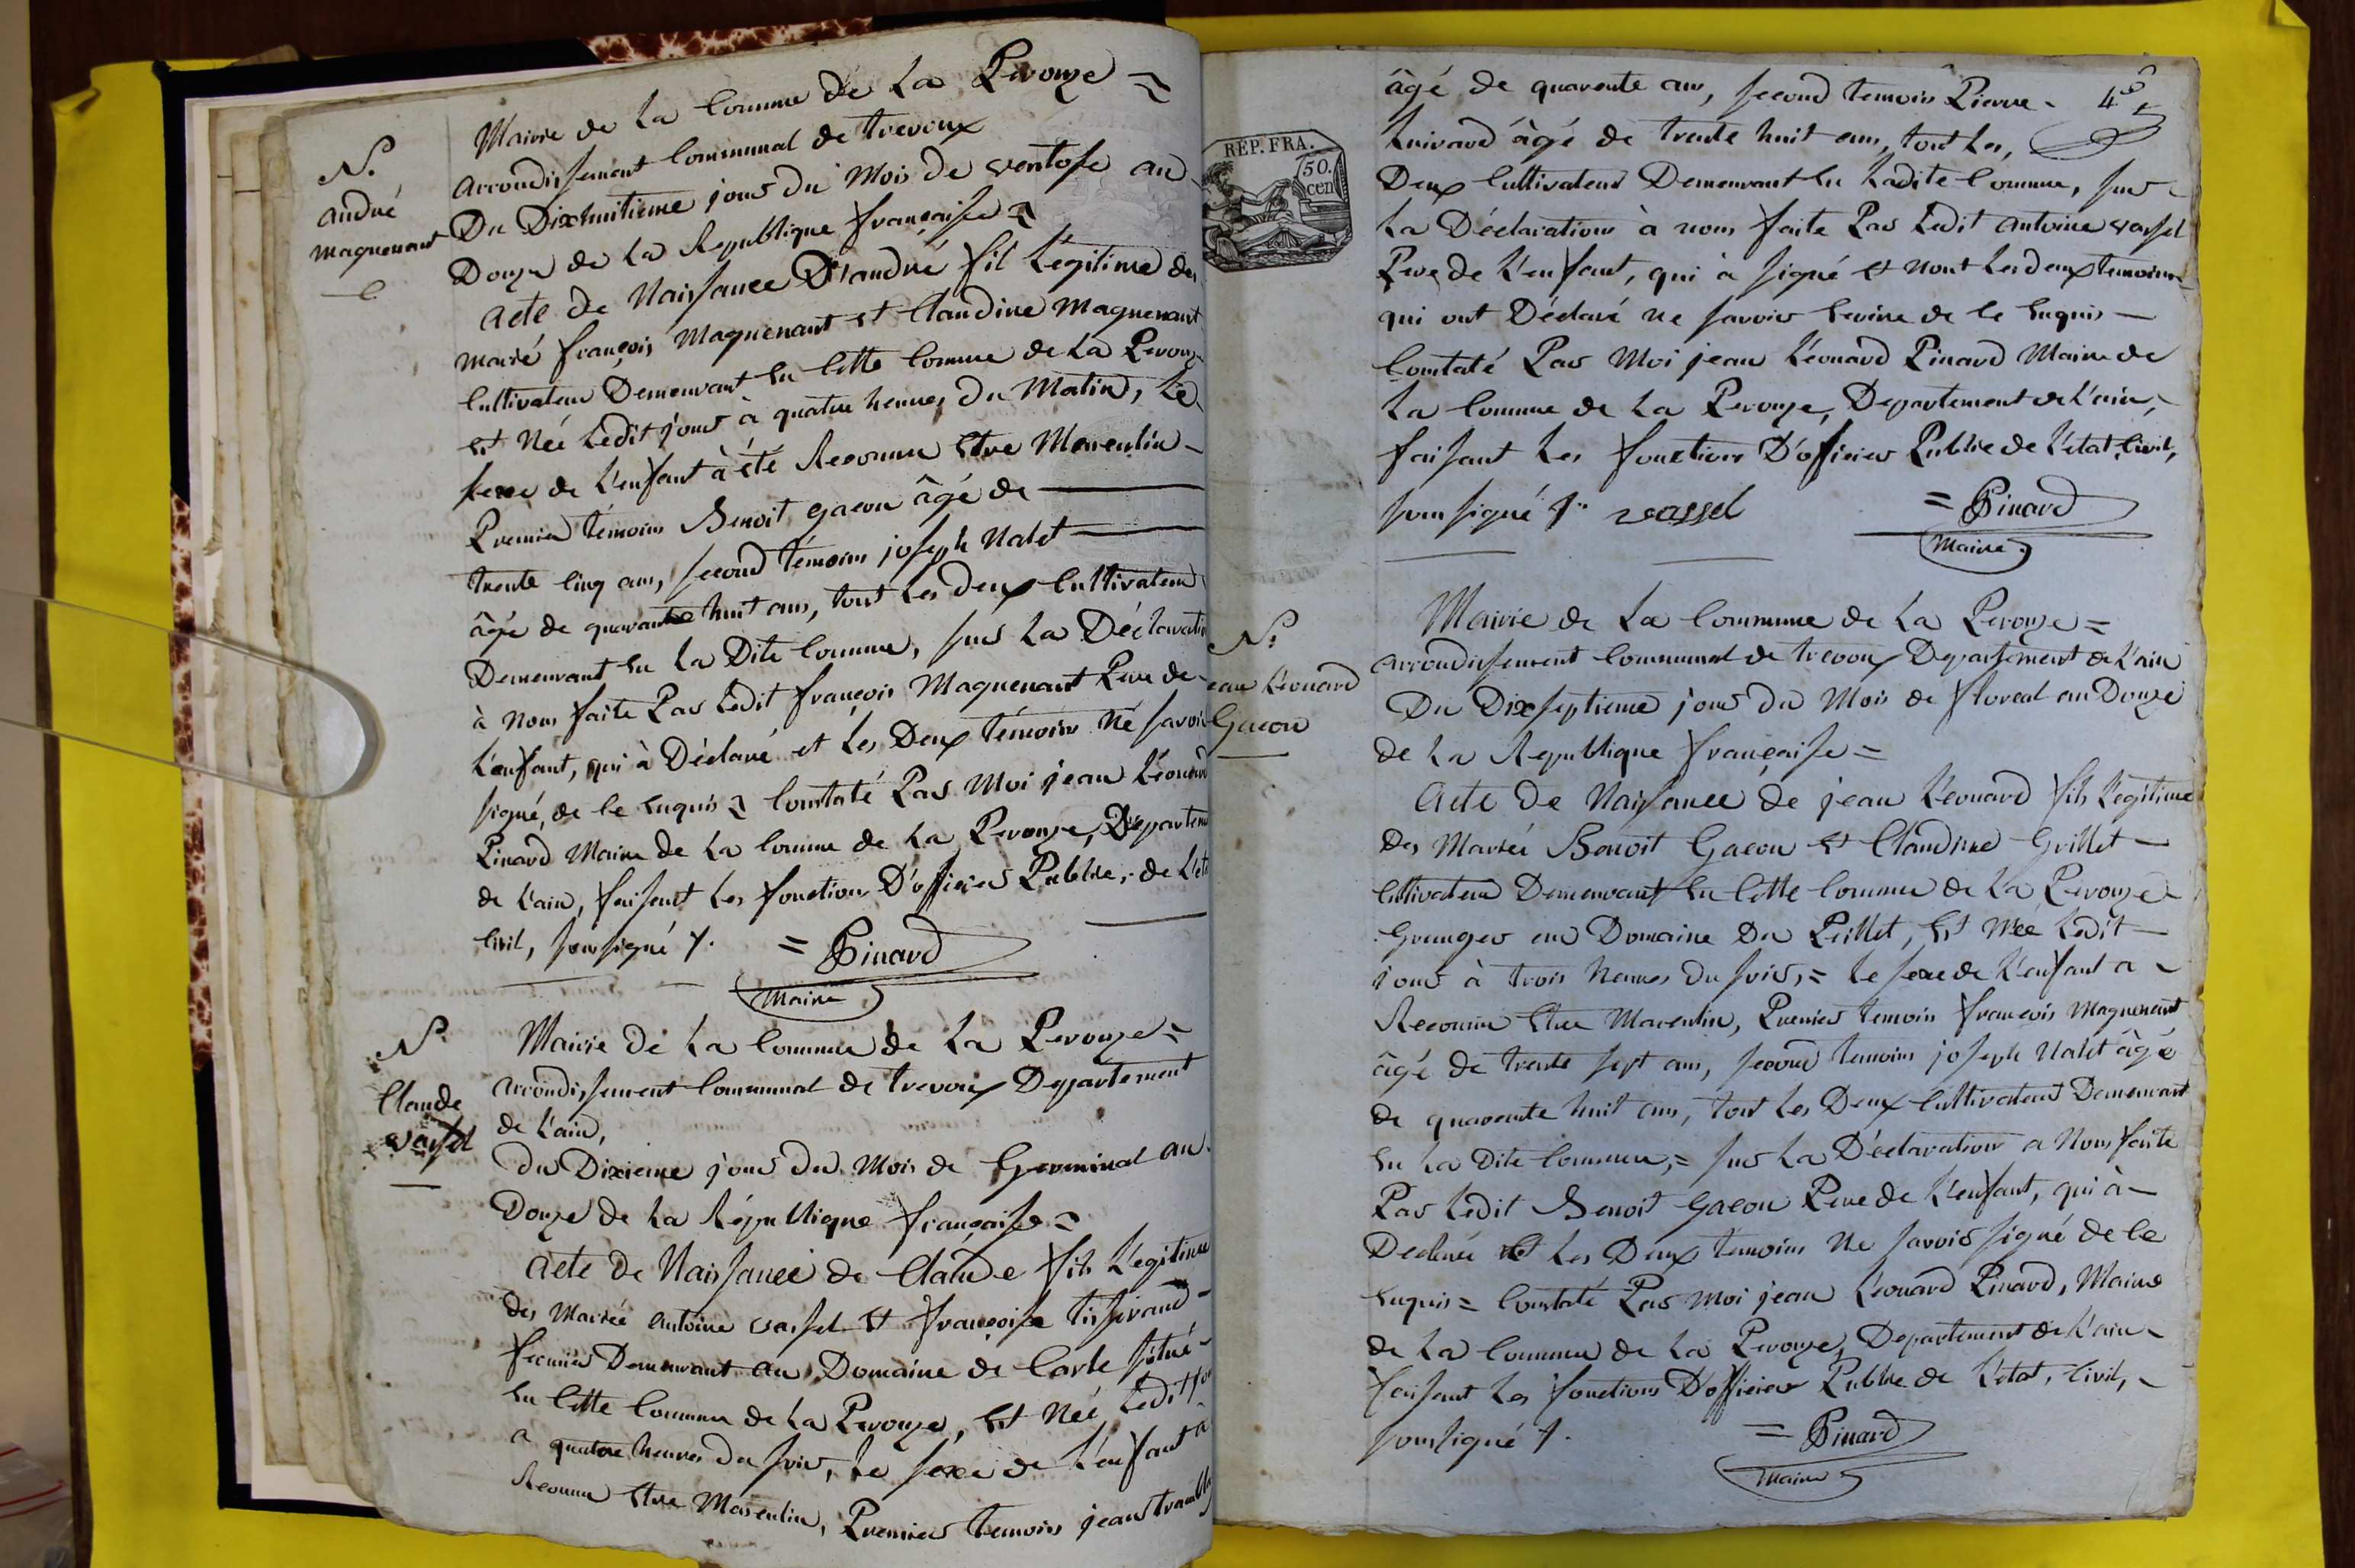 Mairie de La Commune de La Perouze =
N.
André
Magnenant
arrondissement Communal de trevoux
Du Dixhuitieme jour du Mois de ventose an
Douze de La Republique française =
Acte de Naissance D'andré fil Légitime des
marié françois Magnenant Et Claudine Magnenant
Cultivateur Demeurant En Cette Commune de La Perouze
Et Née Ledit jour à quatre heures du Matin, Le
sexe de L'enfant à été Reconnu Etre Masculin —
Premier témoins Benoit gacon âgé de —
trente Cinq ans, second témoins joseph Nalet —
âgé de quarante huit ans, tout Les deux Cultivateur
Demeurant En La Dite Commune, sur La Déclaration
à nous faite Par Ledit françois Magnenant Pere de
L'enfant, qui à Déclaré et Les Deux témoins Ne savoir
signé, de Ce Enquis = Constaté Par Moi jean Léonard
Pinard Maire de La Commune de La Perouze, Departem
de L'ain, faisant Les fonction D'officier Public, de L'et
Civil, soussigné /. = Pinard
Maire
N.
Claude
vassel
Mairie de La Commune de La Perouze =
arrondissement Communal de trevoux Departement
de L'ain,
Du Dixieme jour du Mois de Germinal an
Douze de La Républiqne française =
Acte de Naissance de Claude fils Légitime
des Mariée antoine vassel Et françoise tisserand -
fermier Demeurant au Domaine de Carle situé -
En Cette Commune de La Perouze, Et Née Ledit jou
a quatre heures du soir, Le sexe de L'enfant à
Reconnu Etre Masculin, Premier temoins jean
âgé de quarente ans, second temoins Pierre -
Luivard âgé de trente huit ans, tout Les,
Deux Cultivateur Demeurant En Ladite Commune, sur
La Déclaration à nous faite Par Ledit antoine vassel
Pere de L'enfant, qui à signé Et nont Les deux temoins
qui ont Déclaré ne savoir Ecrire de Ce Enquis —
Constaté Par Moi jean Léonard Pinard Maire de
La Commune de La Perouze, Departement de L'ain,
faisant Les fonctions D'officier Public de L'état, Civil,
soussigné /. vassel = Pinard
Maire
REP. FRA.
50.
cen
N.
ean Léonard
Gacon
Mairie de La Commune de La Perouze =
arrondissement Communal de trevoux Departement de L'ain
Du Dixseptieme jour du Mois de floreal an Douze
de La Republique française =
Acte de Naissance de jean Léonard fils Légitime
Des Mariée Benoit Gacon Et Claudine Grillet —
Cultivateur Demeurant En Cette Commune de La Perouze
Granger au Domaine Du Peillet, Et Née Ledit —
jour à trois heures du soir, = Le sexe de L'enfant a -
Reconnu Etre Masculin, Premier temoin francois Magnenant
âgé de trente sept ans, second temoins joseph Nalet âgé
de quarente huit ans, tout Les Deux Cultivateur Demeurant
En La Dite Commune, = sur La Déclaration a Nous faite
Par Ledit Benoit gacon Pere de L'enfant, qui à —
Déclaré Et Les Deux temoins Ne savoir signé de Ce
Enquis = Constaté Par moi jean Léonard Pinard, Maire
de La Commune de La Perouze, Departement de L'ain -
faisant Les fonctions D'officier Public de L'état, Civil, -
soussigné /. = Pinard
Maire